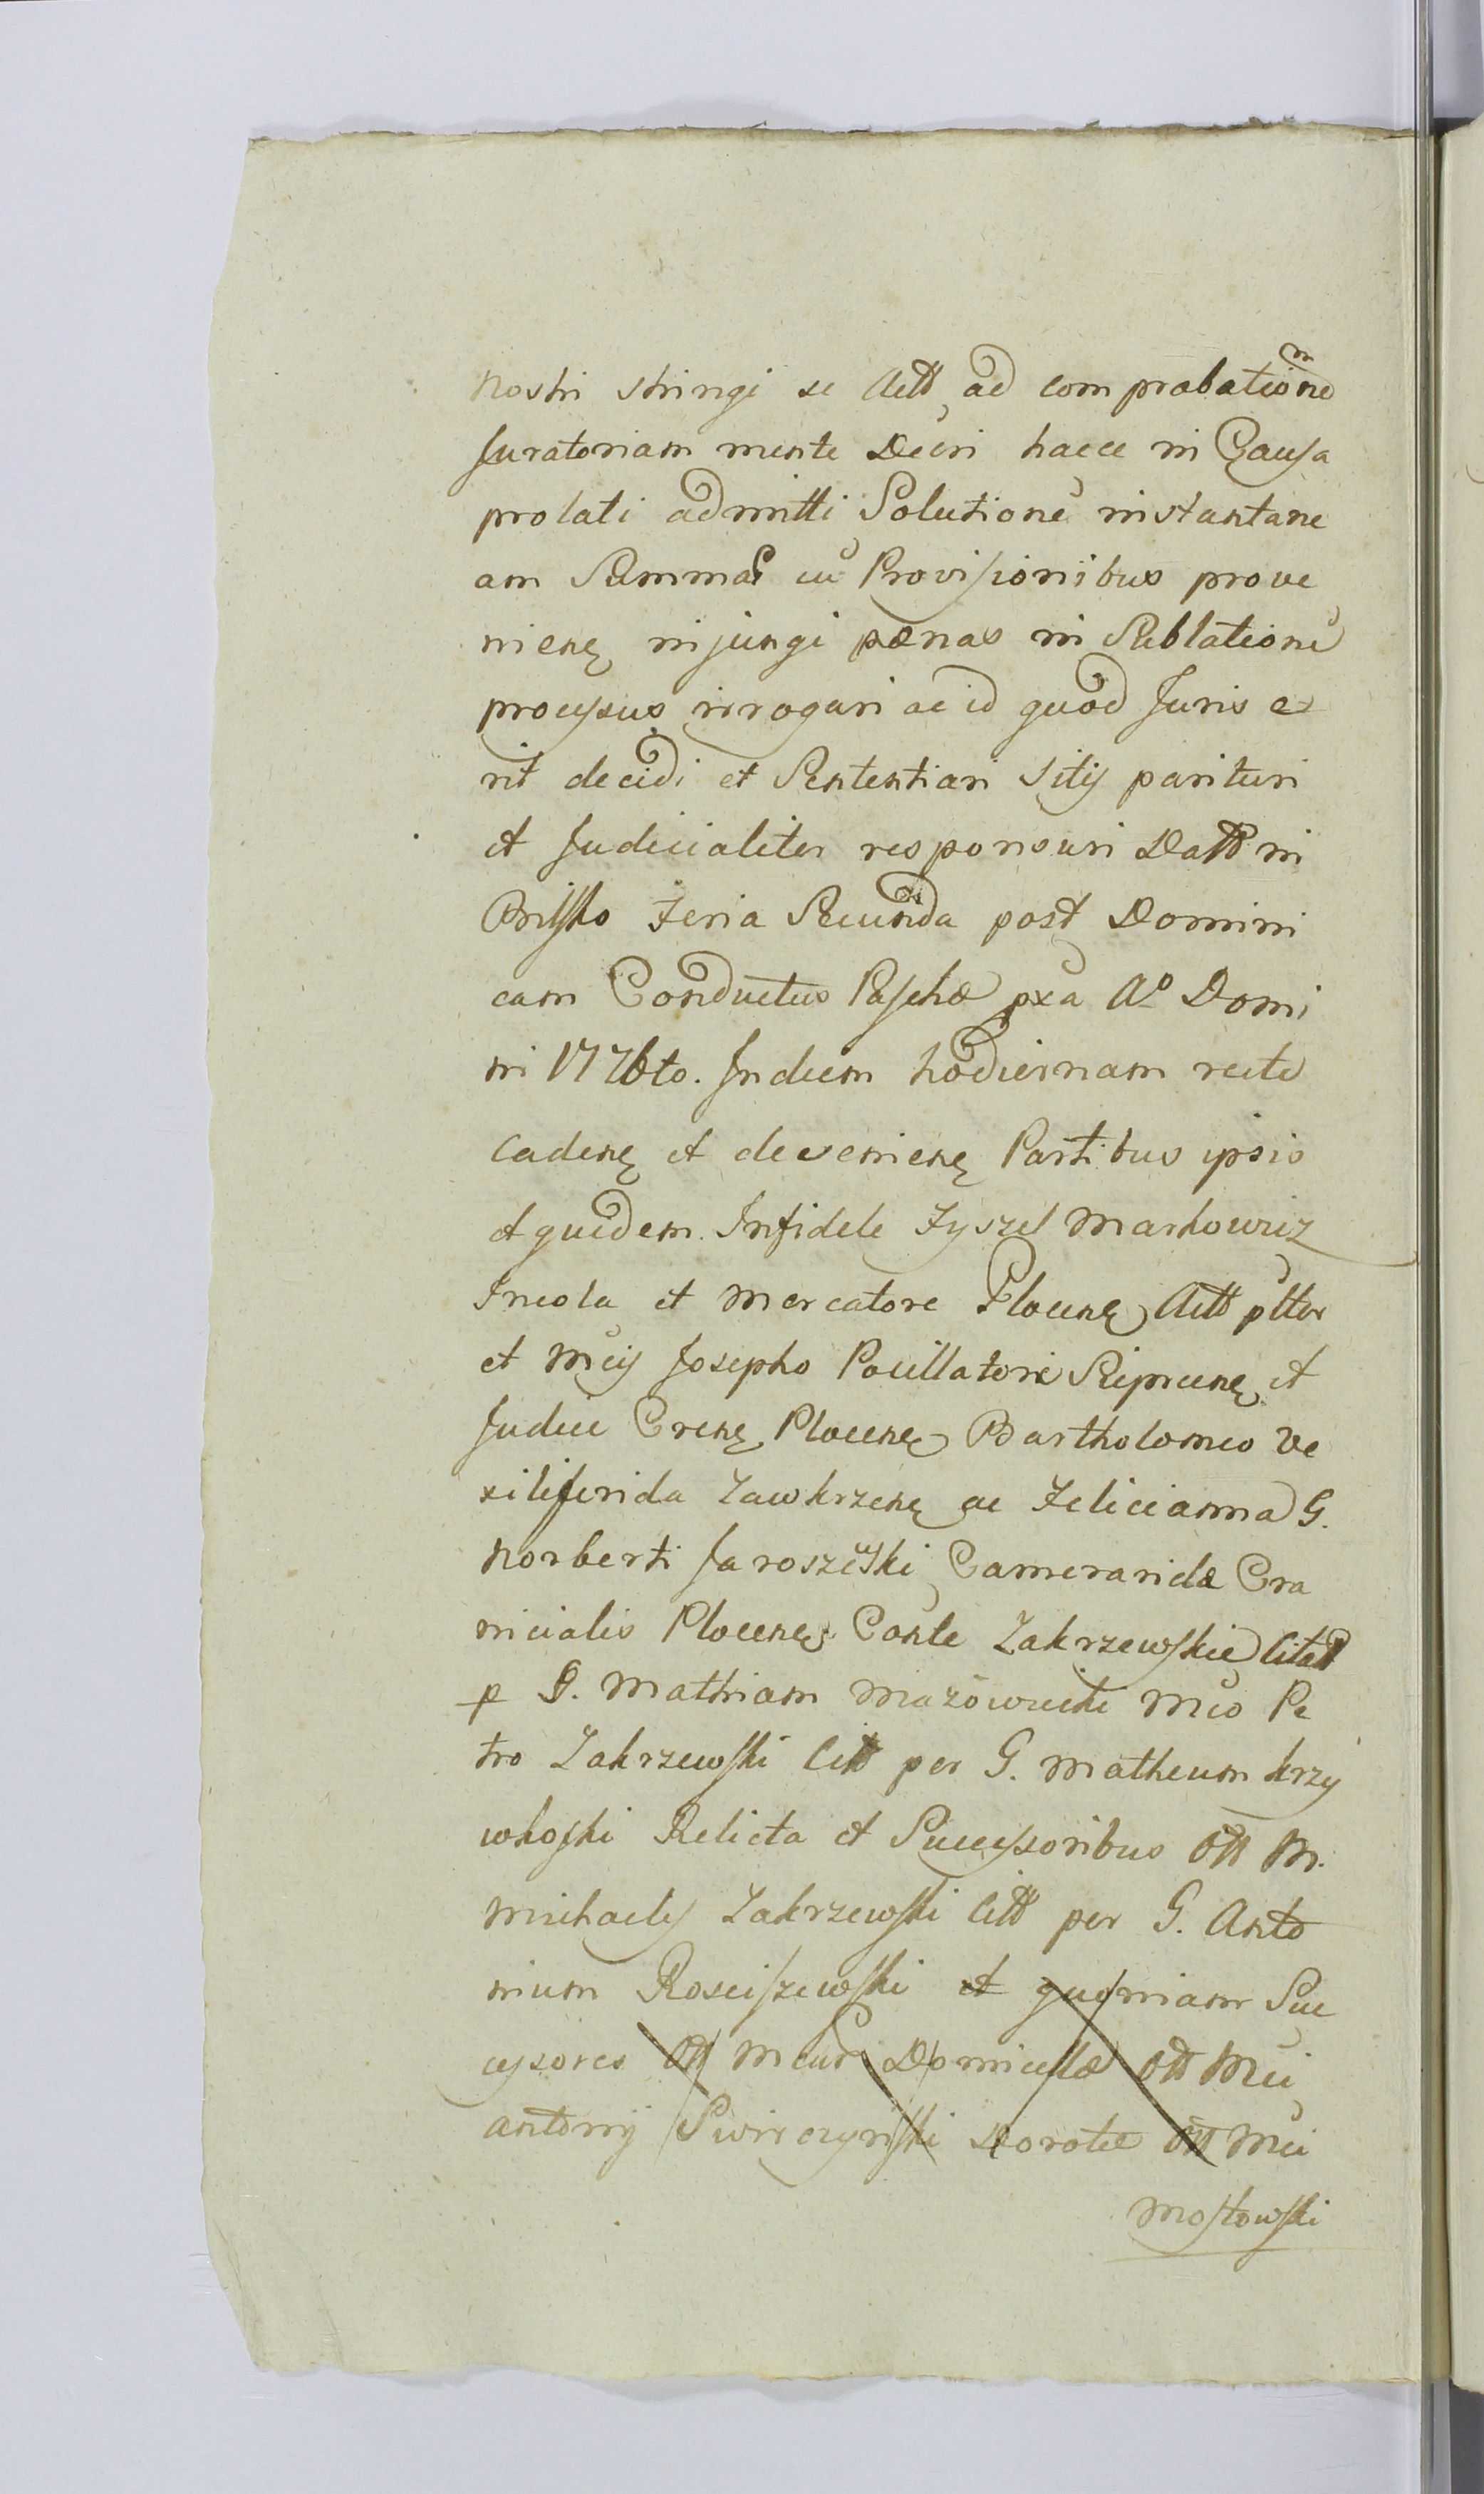 Nostri stringi se Actt ad comprobationem
Juratoriam mente Decri haece in Causa
prolati admitti Solutionē instantane
am Summae cū Provisionibus prove
nienę injungi pœnas in Sublationē
processus irrogari ac id quod Juris e
rit decidi et Sententiari Sitis parituri
et Judicialiter responsuri Datt in
Bielsko Feria Secunda post Domini
cam Conductus Paschæ pxa Aō Domi
ni 1776to. In diem hodiernam recte
Cadenę et devenienę Partibus ipsis
et quidem Infidele Fyszel Markowicz
Incola et Mercatore Plocenę Actt pttor
et Mcis Josepho Pocillatore Siprcenę et
Judice Crenę Plocenę Bartholomeo Ve
xiliferida Zawkrzenę ac Felicianna G.
Norberti Jaroszewski Cameraridæ Cra
nicialis Plocenę Conte Zakrzewskie Citat
p G. Mathiam Mazowiecki Mco Pe
tro Zakrzewski Citt per G. Matheum Krzy
wkoski Relicta et Successoribus Ott M.
Michaelis Zakrzewski Citt per G. Anto
nium Rosciszewski et quoniam Suc
cessores Ott Mcar Domicellæ Ott Mci
Antonij Swierczynski Dorotæ Ott Mci
Mostowski